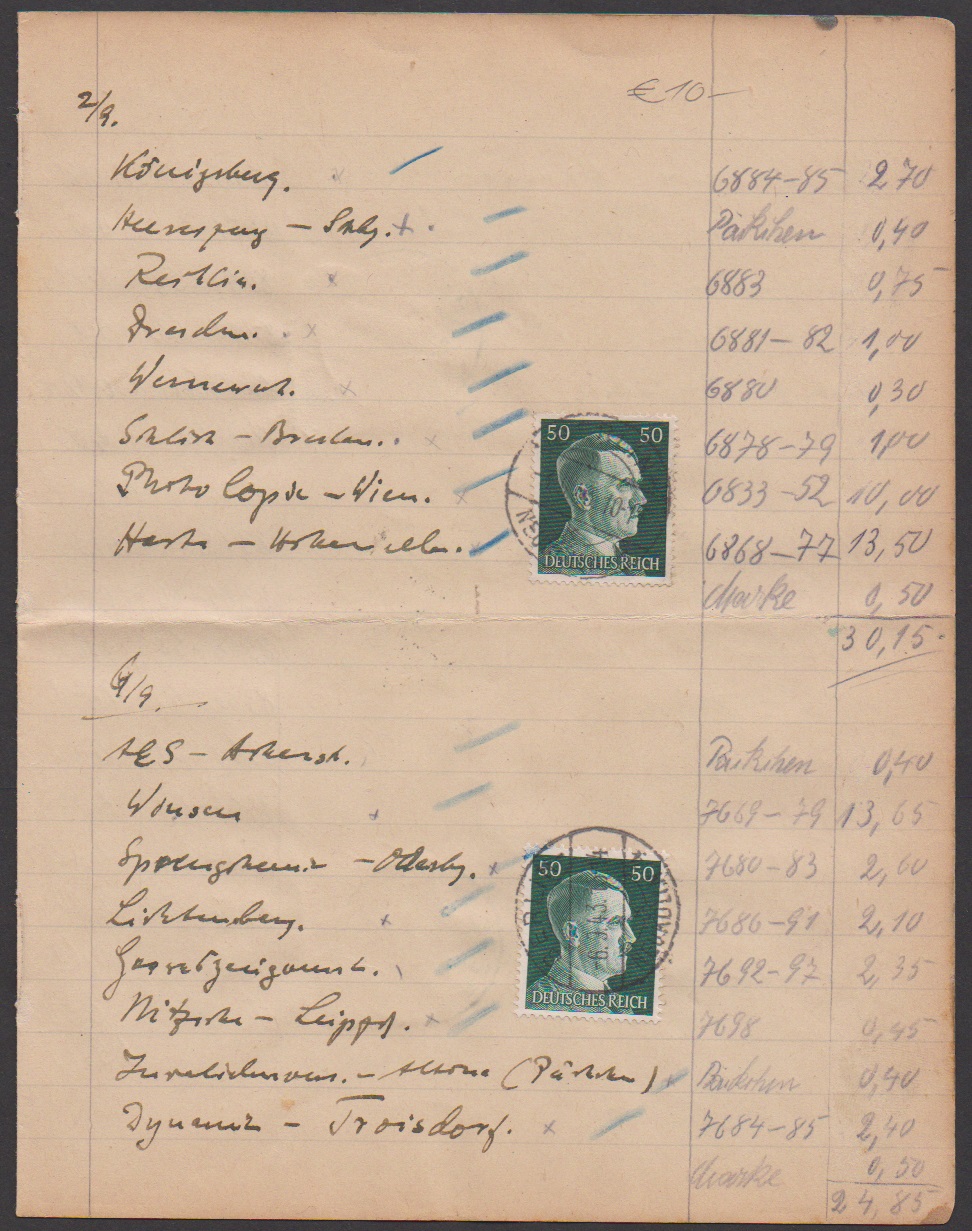 € 10-
2/9.
Königsberg. 6884-85 2,70
Heereszeug - Päckchen 0,40
6883 0,75
Dresden. 6881-82 1,00
6880 0,30
- Breslau. 6878-79 1,00
50 50
Photo Copie - Wien. 6833-52 10,00
- 6868-77 13,50
DEUTSCHES REICH
Marke 0,50
30,15
6/9.
AEG - Päckchen 0,40
Winsen 7669-79 13,65
- Oderbg. 7680-83 2,00
50 50
Lichtenberg. 7686-91 2,10
-6.9.43
7692-97 2,35
DEUTSCHES REICH
Nitzsche - Leipzg. 7698 0,45
- Altona (Päckchen) Päckchen 0,40
Dynamit - Troisdorf. 7684-85 2,40
Marke 0,50
24,85